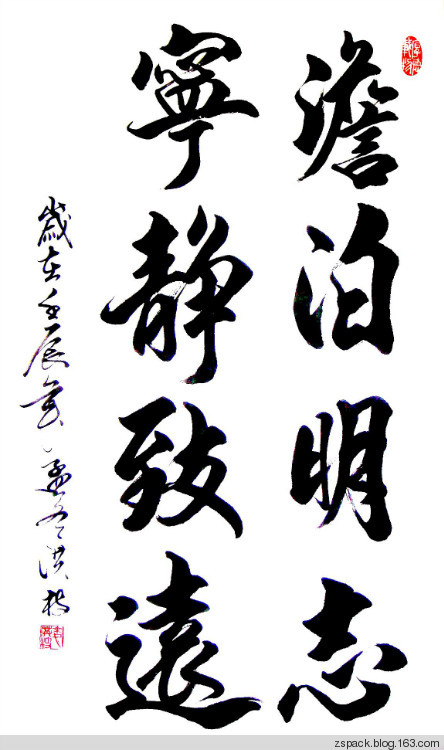 澹泊明志
寧静致遠
歲在壬辰年孟冬洪
zspack.blog.163.com